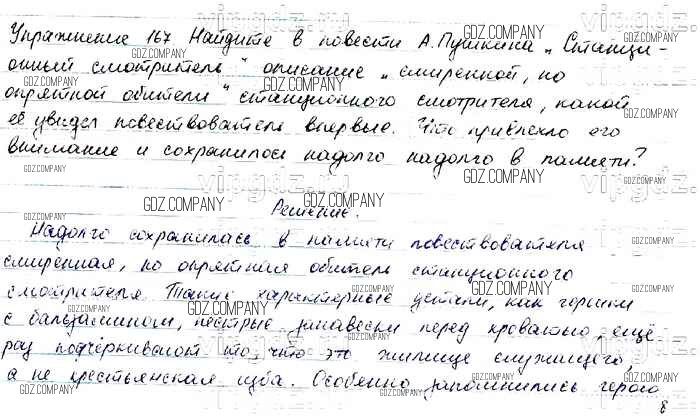 Упражнение 167 Найдите в повести А. Пушкина „Станци-
онный смотритель" описание „смиренной, но
опрятной обители" станционного смотрителя, какой
её увидел повествователь впервые. Что привлекло его
внимание и сохранилось надолго надолго в памяти?
Решение.
Надолго сохранилась в памяти повествователя
смиренная, но опрятная обитель станционного
смотрителя. Такие характерные детали, как горшки
с бальзамином, пёстрые занавески перед кроватью, ещё
раз подчёркивают то, что это жилище служищего,
а не крестьянская изба. Особенно запомнились герою
8
GDZ.COMPANY
vipgdz.ru